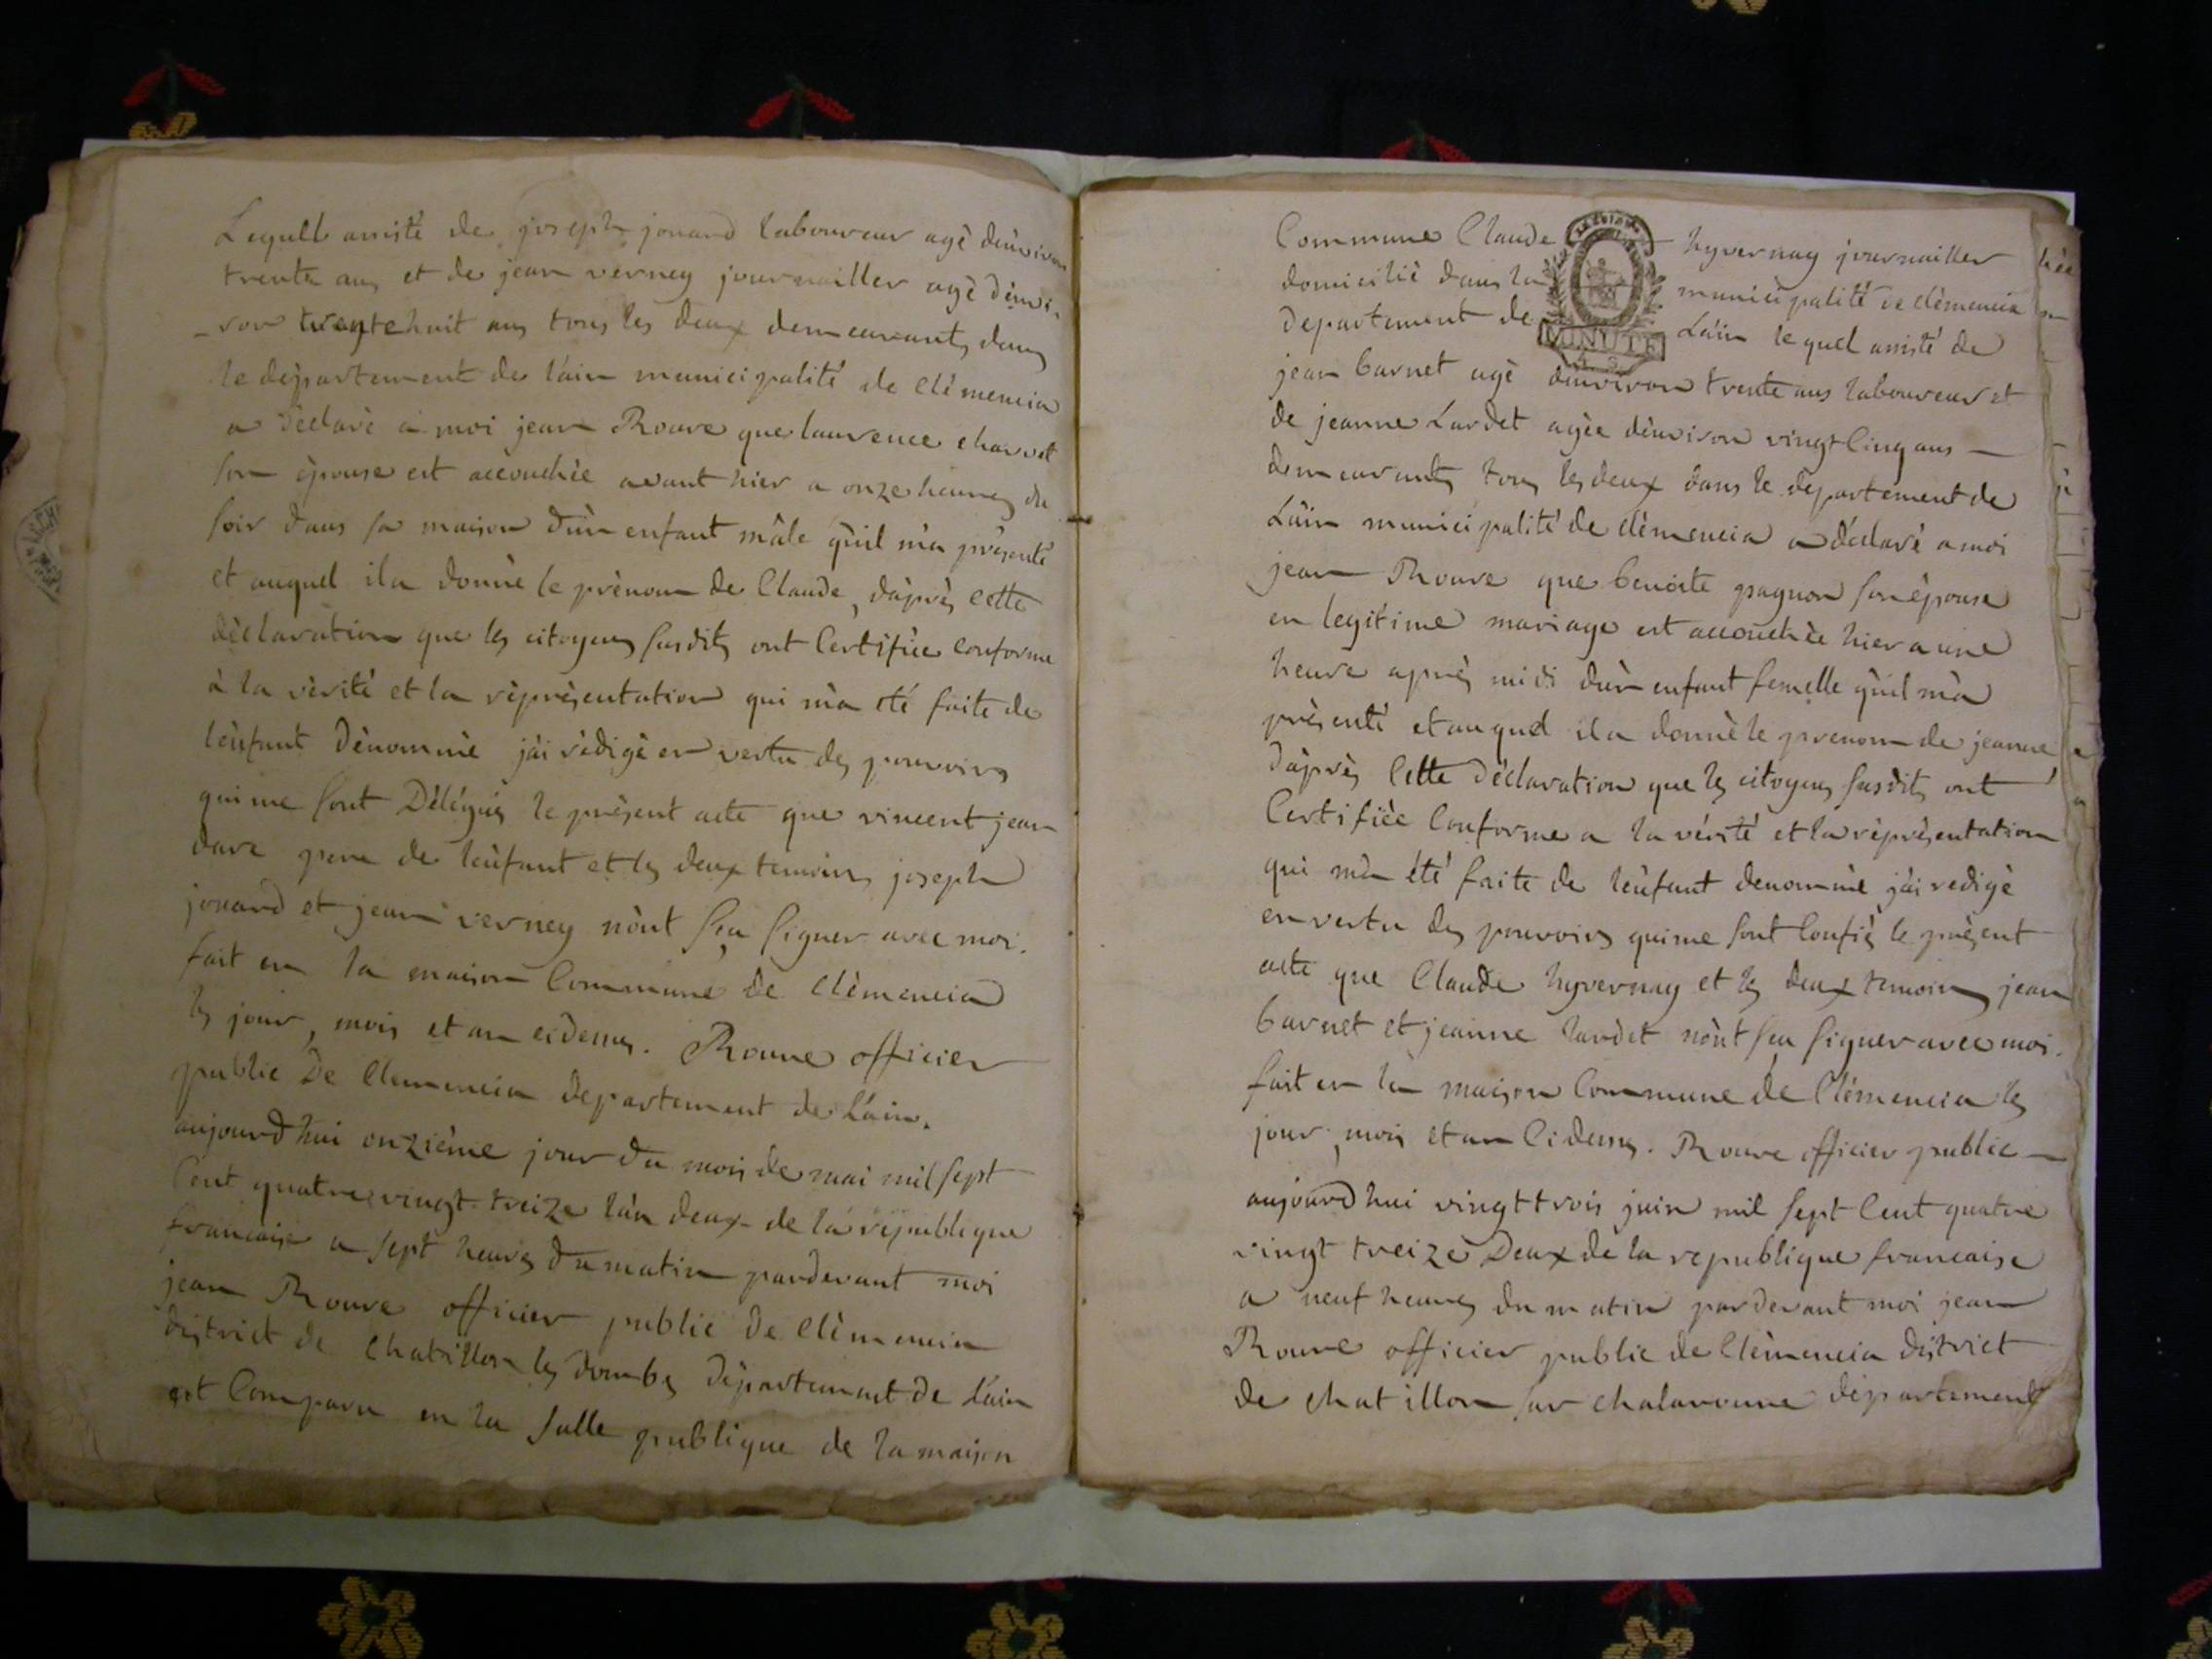 Lequell assisté de joseph jouard laboureur agè dènviron
trente ans et de jean verney journailler agè dènvi-
-ron trentehuit ans tous les deux demeurants dans
le département de l'ain municipalité de Clémencia
a déclaré à moi jean Rouve que laurence charvet
son èpouse est accouchèe avant hier a onze heures du
soir dans sa maison dùn enfant mâle qùil mà présenté
et auquel il a donnè le prènom de Claude, dàprès cette
dèclaration que les citoyens susdits ont Certifièe conforme
à la vèrité et la rèprèsentation qui mà eté faite de
lènfant dènommè jài rèdigè en vertu des pouvoirs
qui me sont Délégués le présent acte que vincent jean
dare pere de lènfant et les deux temoins joseph
jouard et jean verney nònt sçu signer avec moi.
fait en la maison Commune de Clèmencia
les jour, mois et an cidessus. Rouve officier
public De Clemencia departement de L'ain.
aujourdhui onzième jour du mois de mai mil sept
Cent quatre vingt treize làn deux de la république
francaise a sept heures du matin pardevant moi
jean Rouve officier public de Clèmencia
district de Chatillon les dombes département de L'ain
est Comparu en la salle publique de la maison
Commune Claude hyvernay journailler
domicilié dans la municipalité de clèmencia
departement de L'ain le quel assisté de
MINUTE
jean barnet agè dènviron trente ans laboureur et
de jeanne Lardet agèe dènviron vingt Cinq ans —
demeurants tous les deux dans le département de
L'ain municipalité de clèmencia a déclaré a moi
jean Rouve que benoite pagnon son èpouse
en legitime mariage est accouchèe hier a une
heure après midi dùn enfant femelle qùil mà
prèsenté et auquel il a donnè le prenom de jeanne
dàprès Cette déclaration que les citoyens susdits ont
Certifièe Conforme a la vérité et la rèprèsentation
qui mà été faite de lènfant denommè jài redigè
en vertu des pouvoirs qui me sont Confiès le prèsent
acte que Claude hyvernay et les deux temoins jean
barnet et jeanne lardet nònt sçu signer avec moi.
fait en la maison Commune de Clémencia les
jour, mois et an Cidessus. Rouve officier public —
aujourdhui vingt trois juin mil sept Cent quatre
vingt treize Deux de la republique francaise
a neuf heures du matin pardevant moi jean
Rouve officier public de Clèmencia district
de chatillon sur chalaronne département